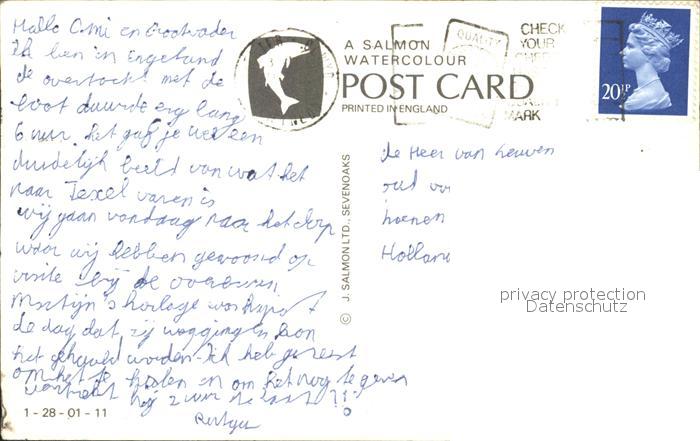 Hallo Omi en Grootvader
Ik ben in Engeland
de overtocht met de
boot duurde erg lang
6 uur. het gaf je wel een
duidelijk beeld van wat het
naar Texel varen is
wij gaan vandaag naar het dorp
waar wij hebben gewoond op
visite bij de
Martijn's horloge was kapot
de dag dat zij weggingen kon
het gehaald worden. Ik heb gereest
om het te halen en om het nog te geven
voor
Rutger
1-28-01-11
A SALMON
WATERCOLOUR
POST CARD
PRINTED IN ENGLAND
© J. SALMON LTD., SEVENOAKS
QUALITY
CHECK
YOUR
MARK
20½P
de Heer van Leeuwen
oud
Holland
privacy protection
Datenschutz